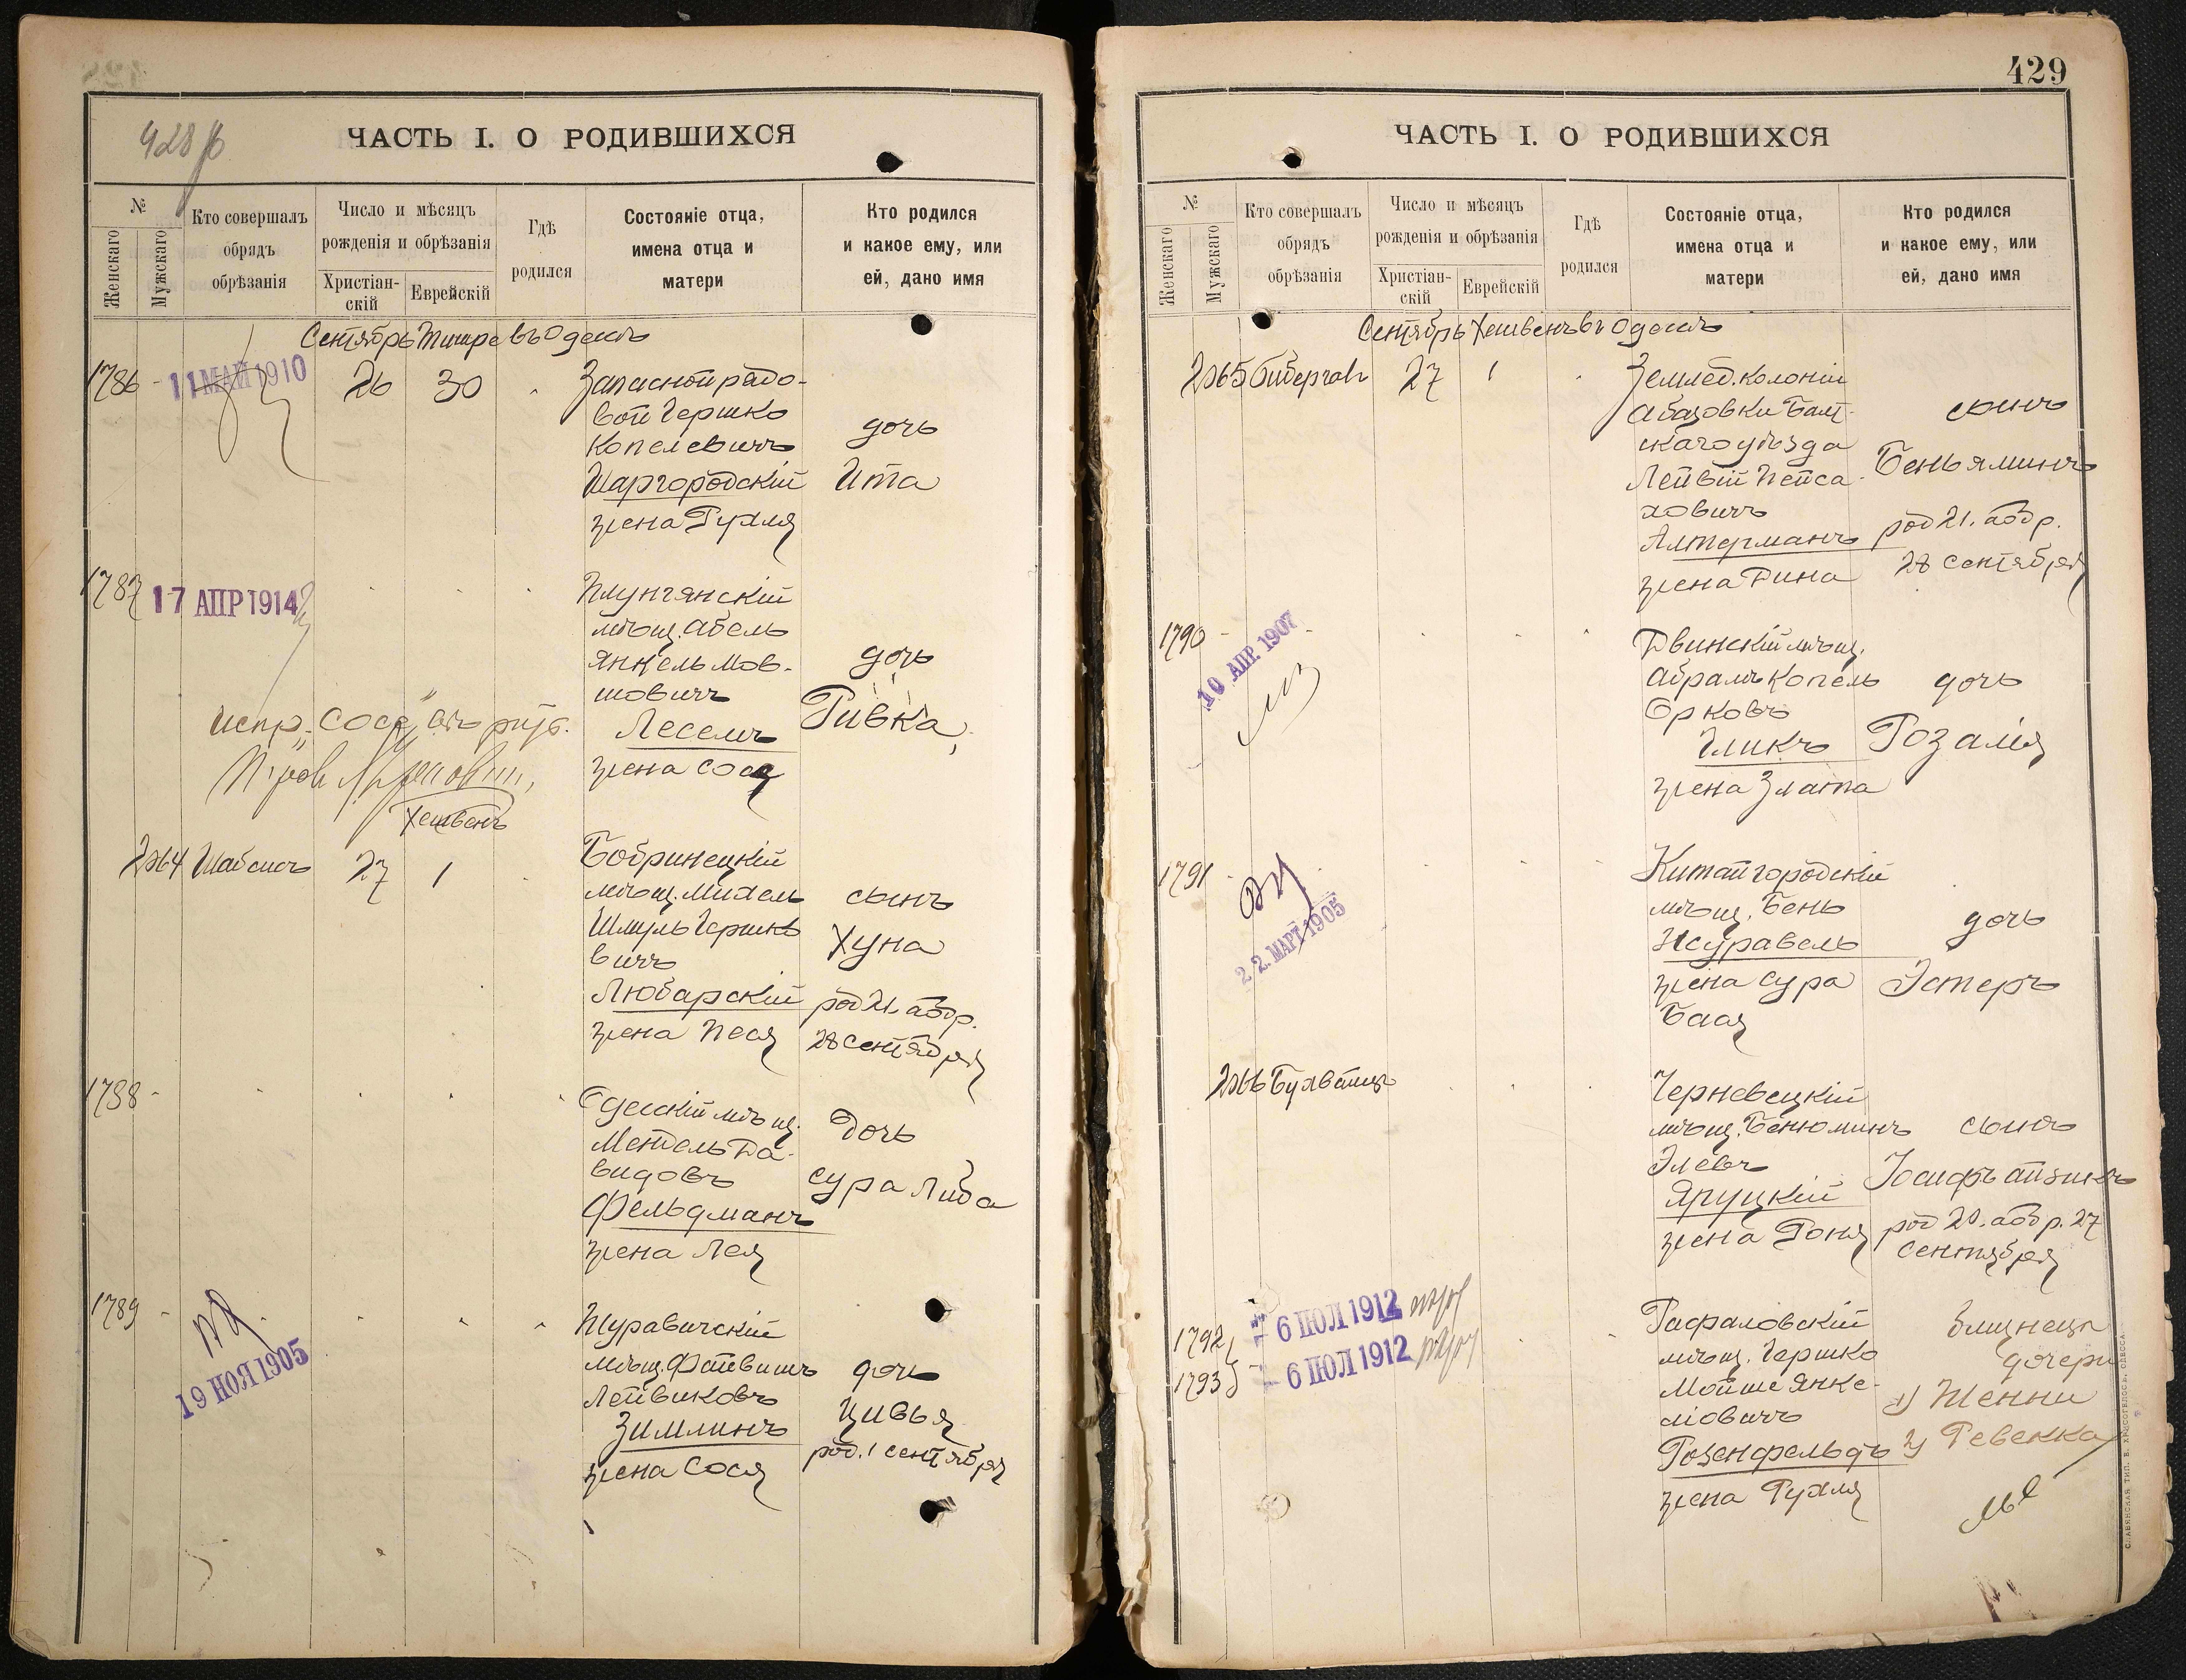 428 об
ЧАСТЬ I. О РОДИВШИХСЯ
№
Женскаго
Мужскаго
Кто совершалъ
обрядъ
обрѣзанія
Число и мѣсяцъ
рожденія и обрѣзанія
Христіан-
скій
Еврейскій
Гдѣ
родился
Состояніе отца,
имена отца и
матери
Кто родился
и какое ему, или
ей, дано имя
Сентябрь Тишре въ Одессѣ
1786 - 11 МАЙ 1910 26 30
Запасной рядо-
вой Гершко
Копелевичъ
Шаргородскій
жена Рухля
дочь
Ита
1787 17 АПР 1914
Плунгянскій
мѣщ. Абель
Янкель Мов-
шовичъ
Леселъ
жена Сося
дочь
Ривка
испр. "Сося"
Хешвенъ
2064 Шабсисъ 27 1
Бобринецкій
мѣщ. Михель
Шмуль Гершко
вичъ
Любарскій
жена Песя
сынъ
Хуна
род 21. аобр.
28 сентября
1788 -
Одесскій мѣщ.
Мендель Да-
видовъ
Фельдманъ
жена Лея
Дочь
Сура Либа
1789 - 19 НОЯ 1905
Журавичскій
мѣщ. Файвишъ
Лейвиковъ
Зимлинъ
жена Сося
дочь
Цивья
род. 1 сентября
429
ЧАСТЬ I. О РОДИВШИХСЯ
№
Женскаго
Мужскаго
Кто совершалъ
обрядъ
обрѣзанія
Число и мѣсяцъ
рожденія и обрѣзанія
Христіан-
скій
Еврейскій
Гдѣ
родился
Состояніе отца,
имена отца и
матери
Кто родился
и какое ему, или
ей, дано имя
Сентябрь Хешвенъ въ Одессѣ
2065 Бибергалъ 27 1
Землед. колоніи
Абазовки Балт-
скаго уѣзда
Лейвій Пейса-
ховичъ
Алтерманъ
жена Дина
сынъ
Беньяминъ
род 21. аобр.
28 сентября
1790 - 10 АПР. 1907
Двинскій мѣщ.
Абрамъ Копель
Орковъ
Гликъ
жена Злата
дочь
Розалія
1791 - 22. МАРТ 1905
Китайгородскій
мѣщ. Бень
Журавель
жена Сура
Бася
дочь
Эстеръ
2066
Черневецкій
мѣщ. Беньюминъ
Элевъ
Яруцкій
жена Роня
сынъ
Іосифъ Айзикъ
род 20. аобр. 27
сентября
1792 6 ІЮЛ 1912
1793 6 ІЮЛ 1912
Рафаловскій
мѣщ. Гершко
Мойше Янке-
ліовичъ
Розенфельдъ
жена Рухля
близнецы
дочери
1) Женни
2) Ревекка
СЛАВЯНСКАЯ ТИП. Е. ХРИСОГЕЛОСЪ, ОДЕССА.